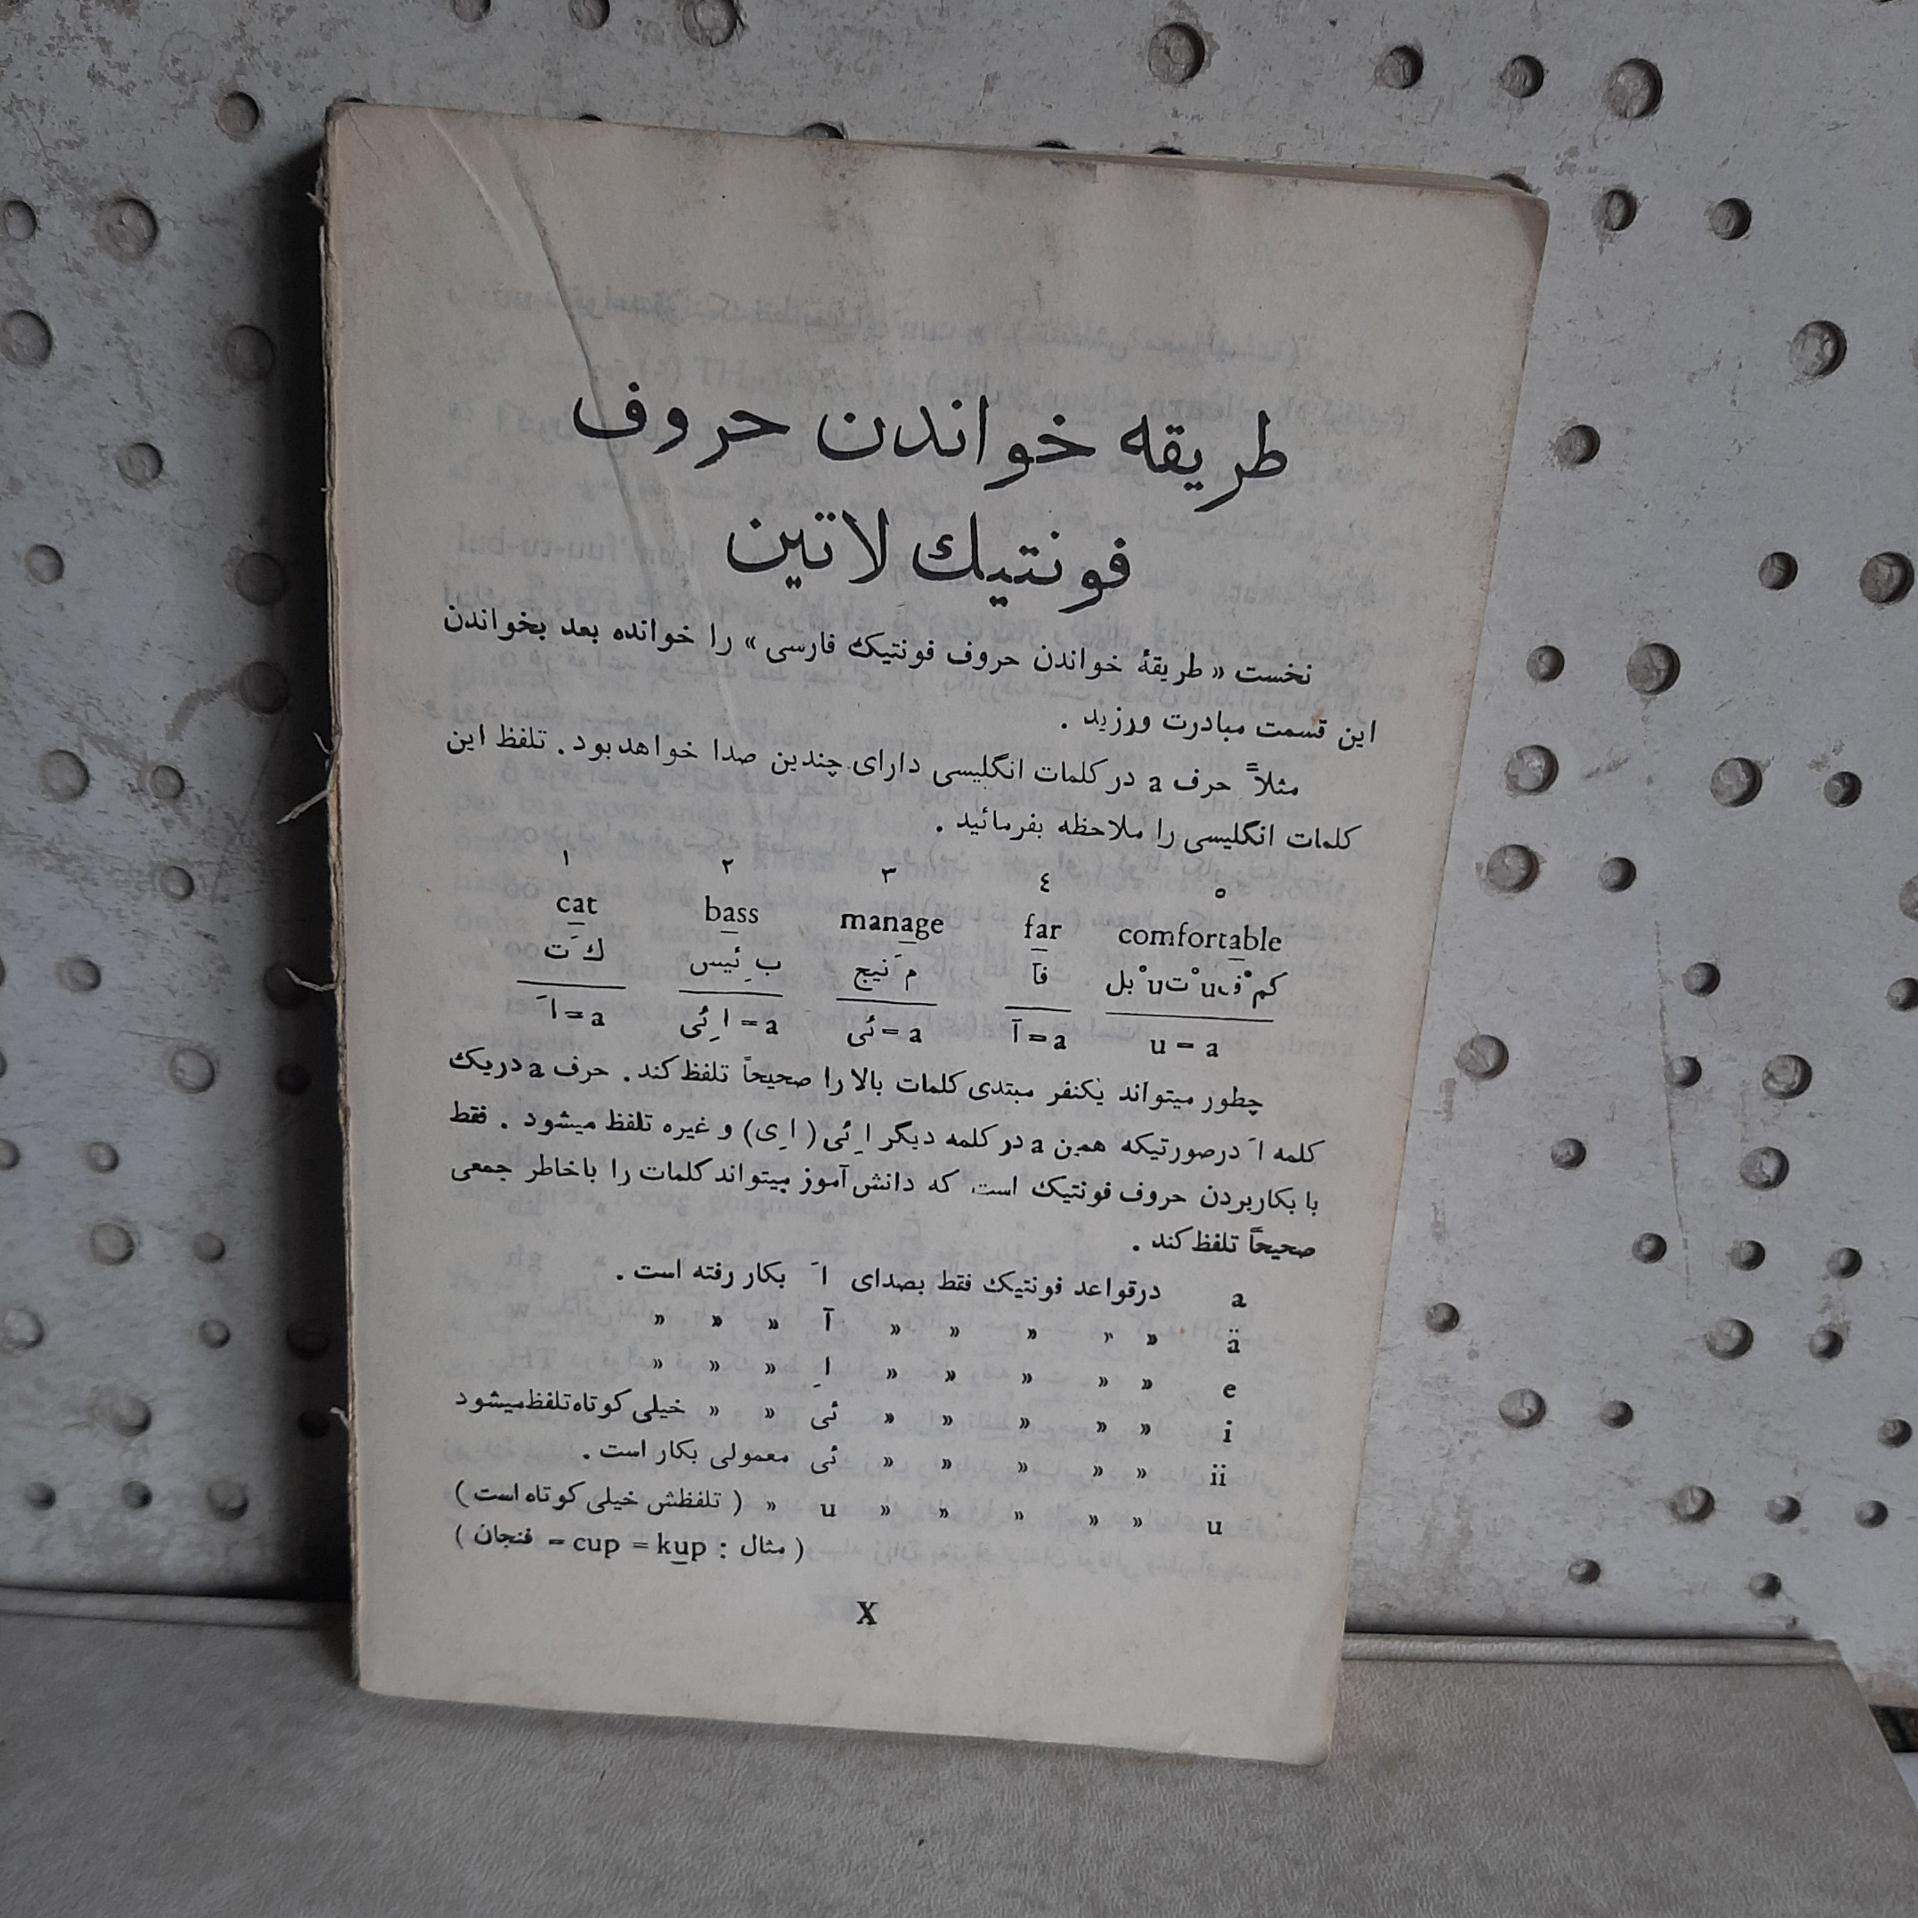 طریقه خواندن حروف
فونتیك لاتین
نخست « طریقهٔ خواندن حروف فونتیك فارسی » را خوانده بعد بخواندن
این قسمت مبادرت ورزید .
مثلاً حرف a در کلمات انگلیسی دارای چندین صدا خواهد بود . تلفظ این
کلمات انگلیسی را ملاحظه بفرمائید .
۱ ۲ ۳ ٤ ٥
cat bass manage far comfortable
كَ ت بِ ئیس مَ نیج فآ کمْ فuْ تuْ بل
اَ = a اِ ئی = a ئی = a آ = a u = a
چطور میتواند یکنفر مبتدی کلمات بالا را صحیحاً تلفظ کند . حرف a دریك
کلمه اَ درصورتیکه همین a در کلمه دیگر اِ ئی ( اِ ی ) و غیره تلفظ میشود . فقط
با بکار بردن حروف فونتیك است که دانش آموز میتواند کلمات را با خاطر جمعی
صحیحاً تلفظ کند .
a درقواعد فونتیك فقط بصدای اَ بکار رفته است .
ä » » » » » آ » » »
e » » » » » اِ » » »
i » » » » » ئی » » خیلی کوتاه تلفظ میشود
ii » » » » » ئی معمولی بکار است .
u » » » » » u » ( تلفظش خیلی کوتاه است )
( مثال : cup = kup = فنجان )
X